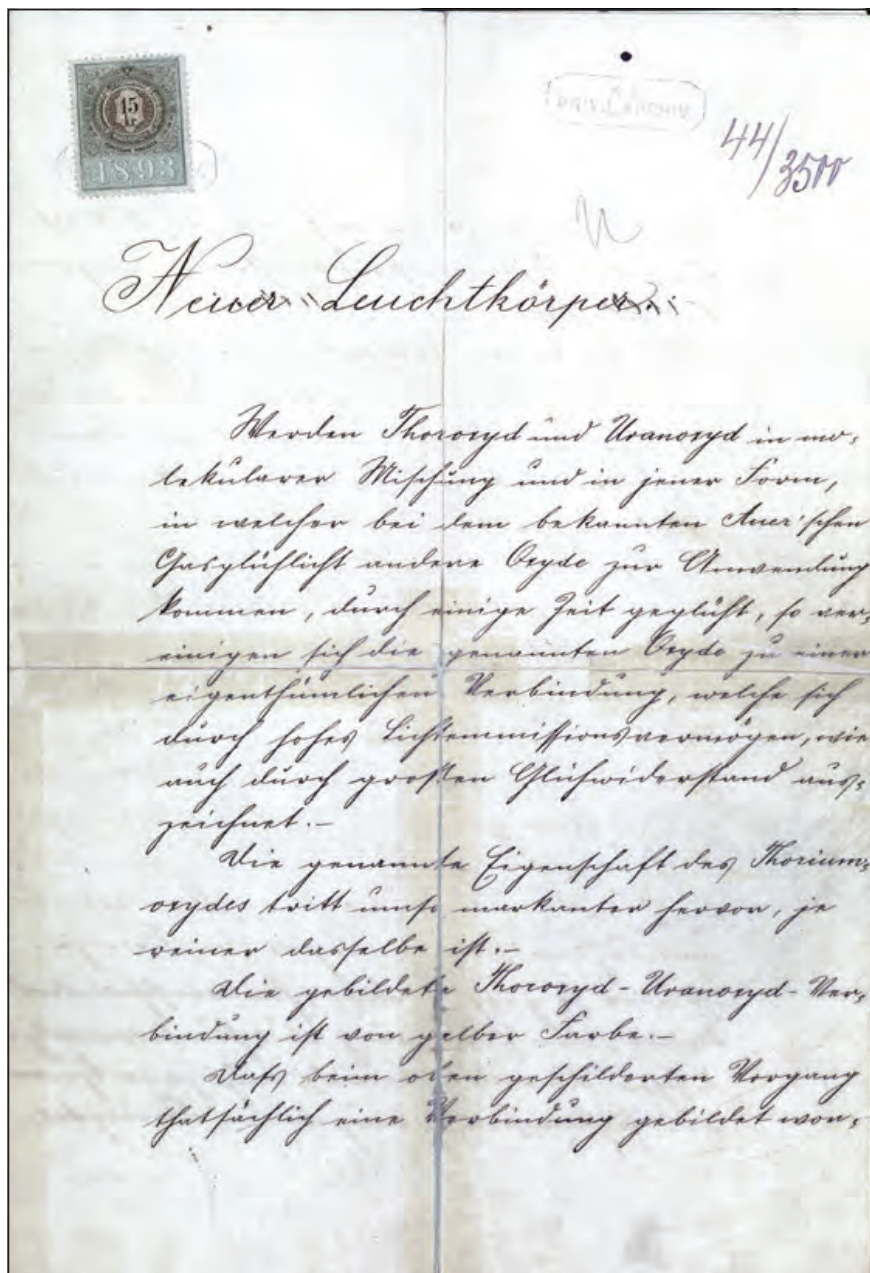 15
kr
1893
PRIV. ARCHIV
44/3500
Neuer Leuchtkörper.
Werden Thoroxyd und Uranoxyd in mo-
lekularer Mischung und in jener Form,
in welcher bei dem bekannten Auer'schen
Gasglühlicht andere Oxyde zur Anwendung
kommen, durch einige Zeit geglüht, so ver-
einigen sich die genannten Oxyde zu einer
eigenthümlichen Verbindung, welche sich
durch hohes Lichtemmissionsvermögen, wie
auch durch großen Glühwiderstand aus-
zeichnet.-
Die genannte Eigenschaft des Thorium-
oxydes tritt umso markanter hervor, je
reiner dasselbe ist.-
Die gebildete Thoroxyd-Uranoxyd-Ver-
bindung ist von gelber Farbe.-
Dass beim oben geschilderten Vorgang
thatsächlich eine Verbindung gebildet wor-